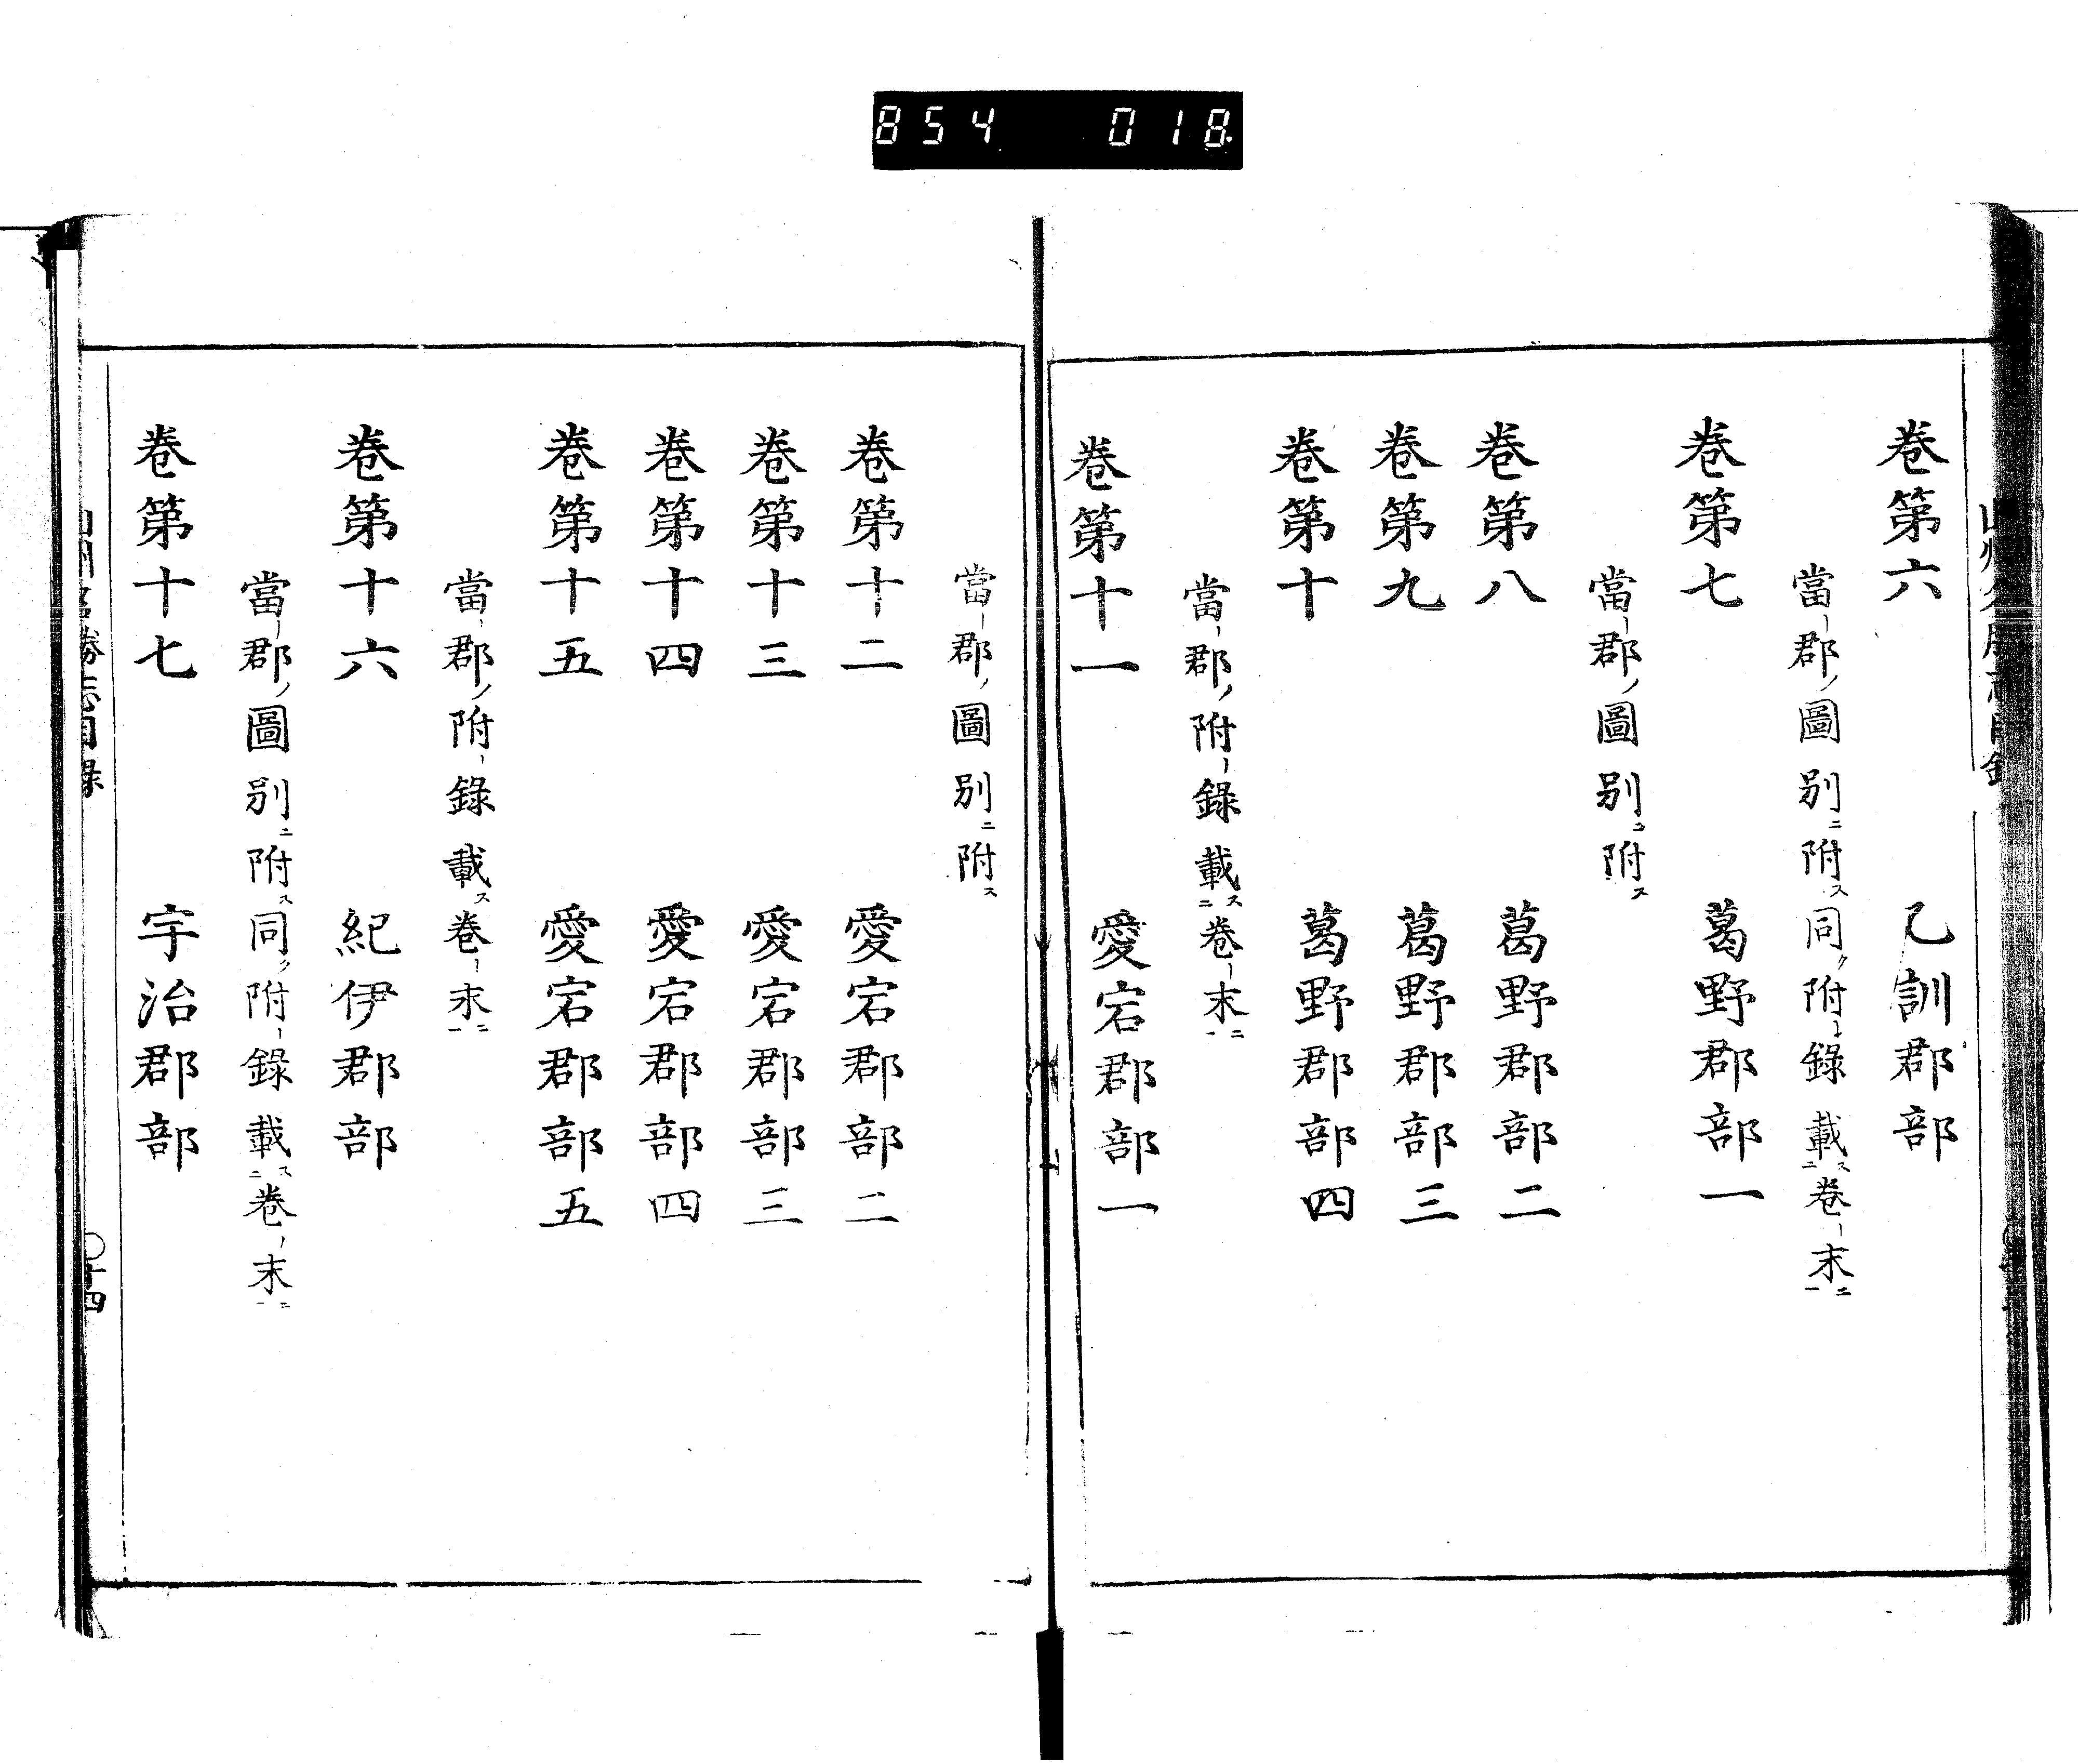 854 018
卷第六 乙訓郡部
當郡ノ圖別ニ附ス同ク附錄載ス卷末ニ
卷第七 葛野郡部一
當郡ノ圖別ニ附ス
卷第八 葛野郡部二
卷第九 葛野郡部三
卷第十 葛野郡部四
當郡ノ附錄載ス卷末ニ
卷第十一 愛宕郡部一
當郡ノ圖別ニ附ス
卷第十二 愛宕郡部二
卷第十三 愛宕郡部三
卷第十四 愛宕郡部四
卷第十五 愛宕郡部五
當郡ノ附錄載ス卷末ニ
卷第十六 紀伊郡部
當郡ノ圖別ニ附ス同ク附錄載ス卷末ニ
卷第十七 宇治郡部
山州名勝志目録 〇十四